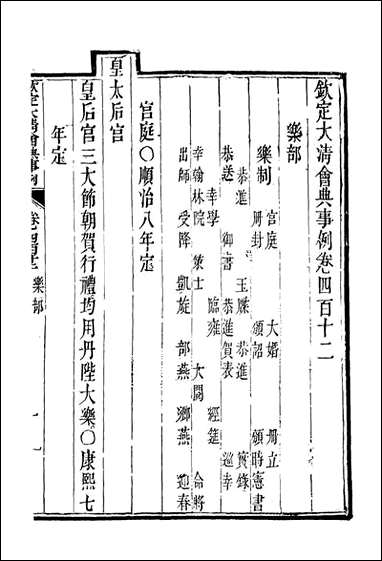 欽定大清會典事例卷四百十二
樂部
樂制 宮庭 大婚 冊立
冊封 頒詔 頒時憲書
恭進 玉牒 恭進 實錄
恭送 御書 恭進賀表 巡幸
幸學 臨雍 經筵
幸翰林院 策士 大閱 命將
出師 受降 凱旋 部燕 鄉燕 迎春
宮庭〇順治八年定
皇太后宮
皇后宮三大節朝賀行禮均用丹陛大樂〇康熙七
年定
欽定大清會典事例 卷四百十二 樂部 一